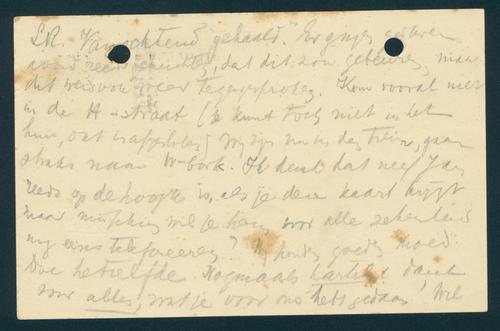 L.R. Vanochtend gehaald. Er gingen gisteren
avond reeds geruchten, dat dit zou gebeuren, maar
dit werd ook weer tegengesproken. Kom vooral niet
in de H-straat (je kunt toch niet in het
huis, dat is afgesloten) Wij zijn nu in den trein, gaan
straks naar W-bork. Ik denk dat neef Jan
reeds op de hoogte is, als je deze kaart krijgt
maar misschien wil je hem, voor alle zekerheid
nog eens telefoneeren? Wij houden goeden moed.
Doe hetzelfde. Nogmaals hartelijk dank
voor alles, wat je voor ons hebt gedaan! Wil